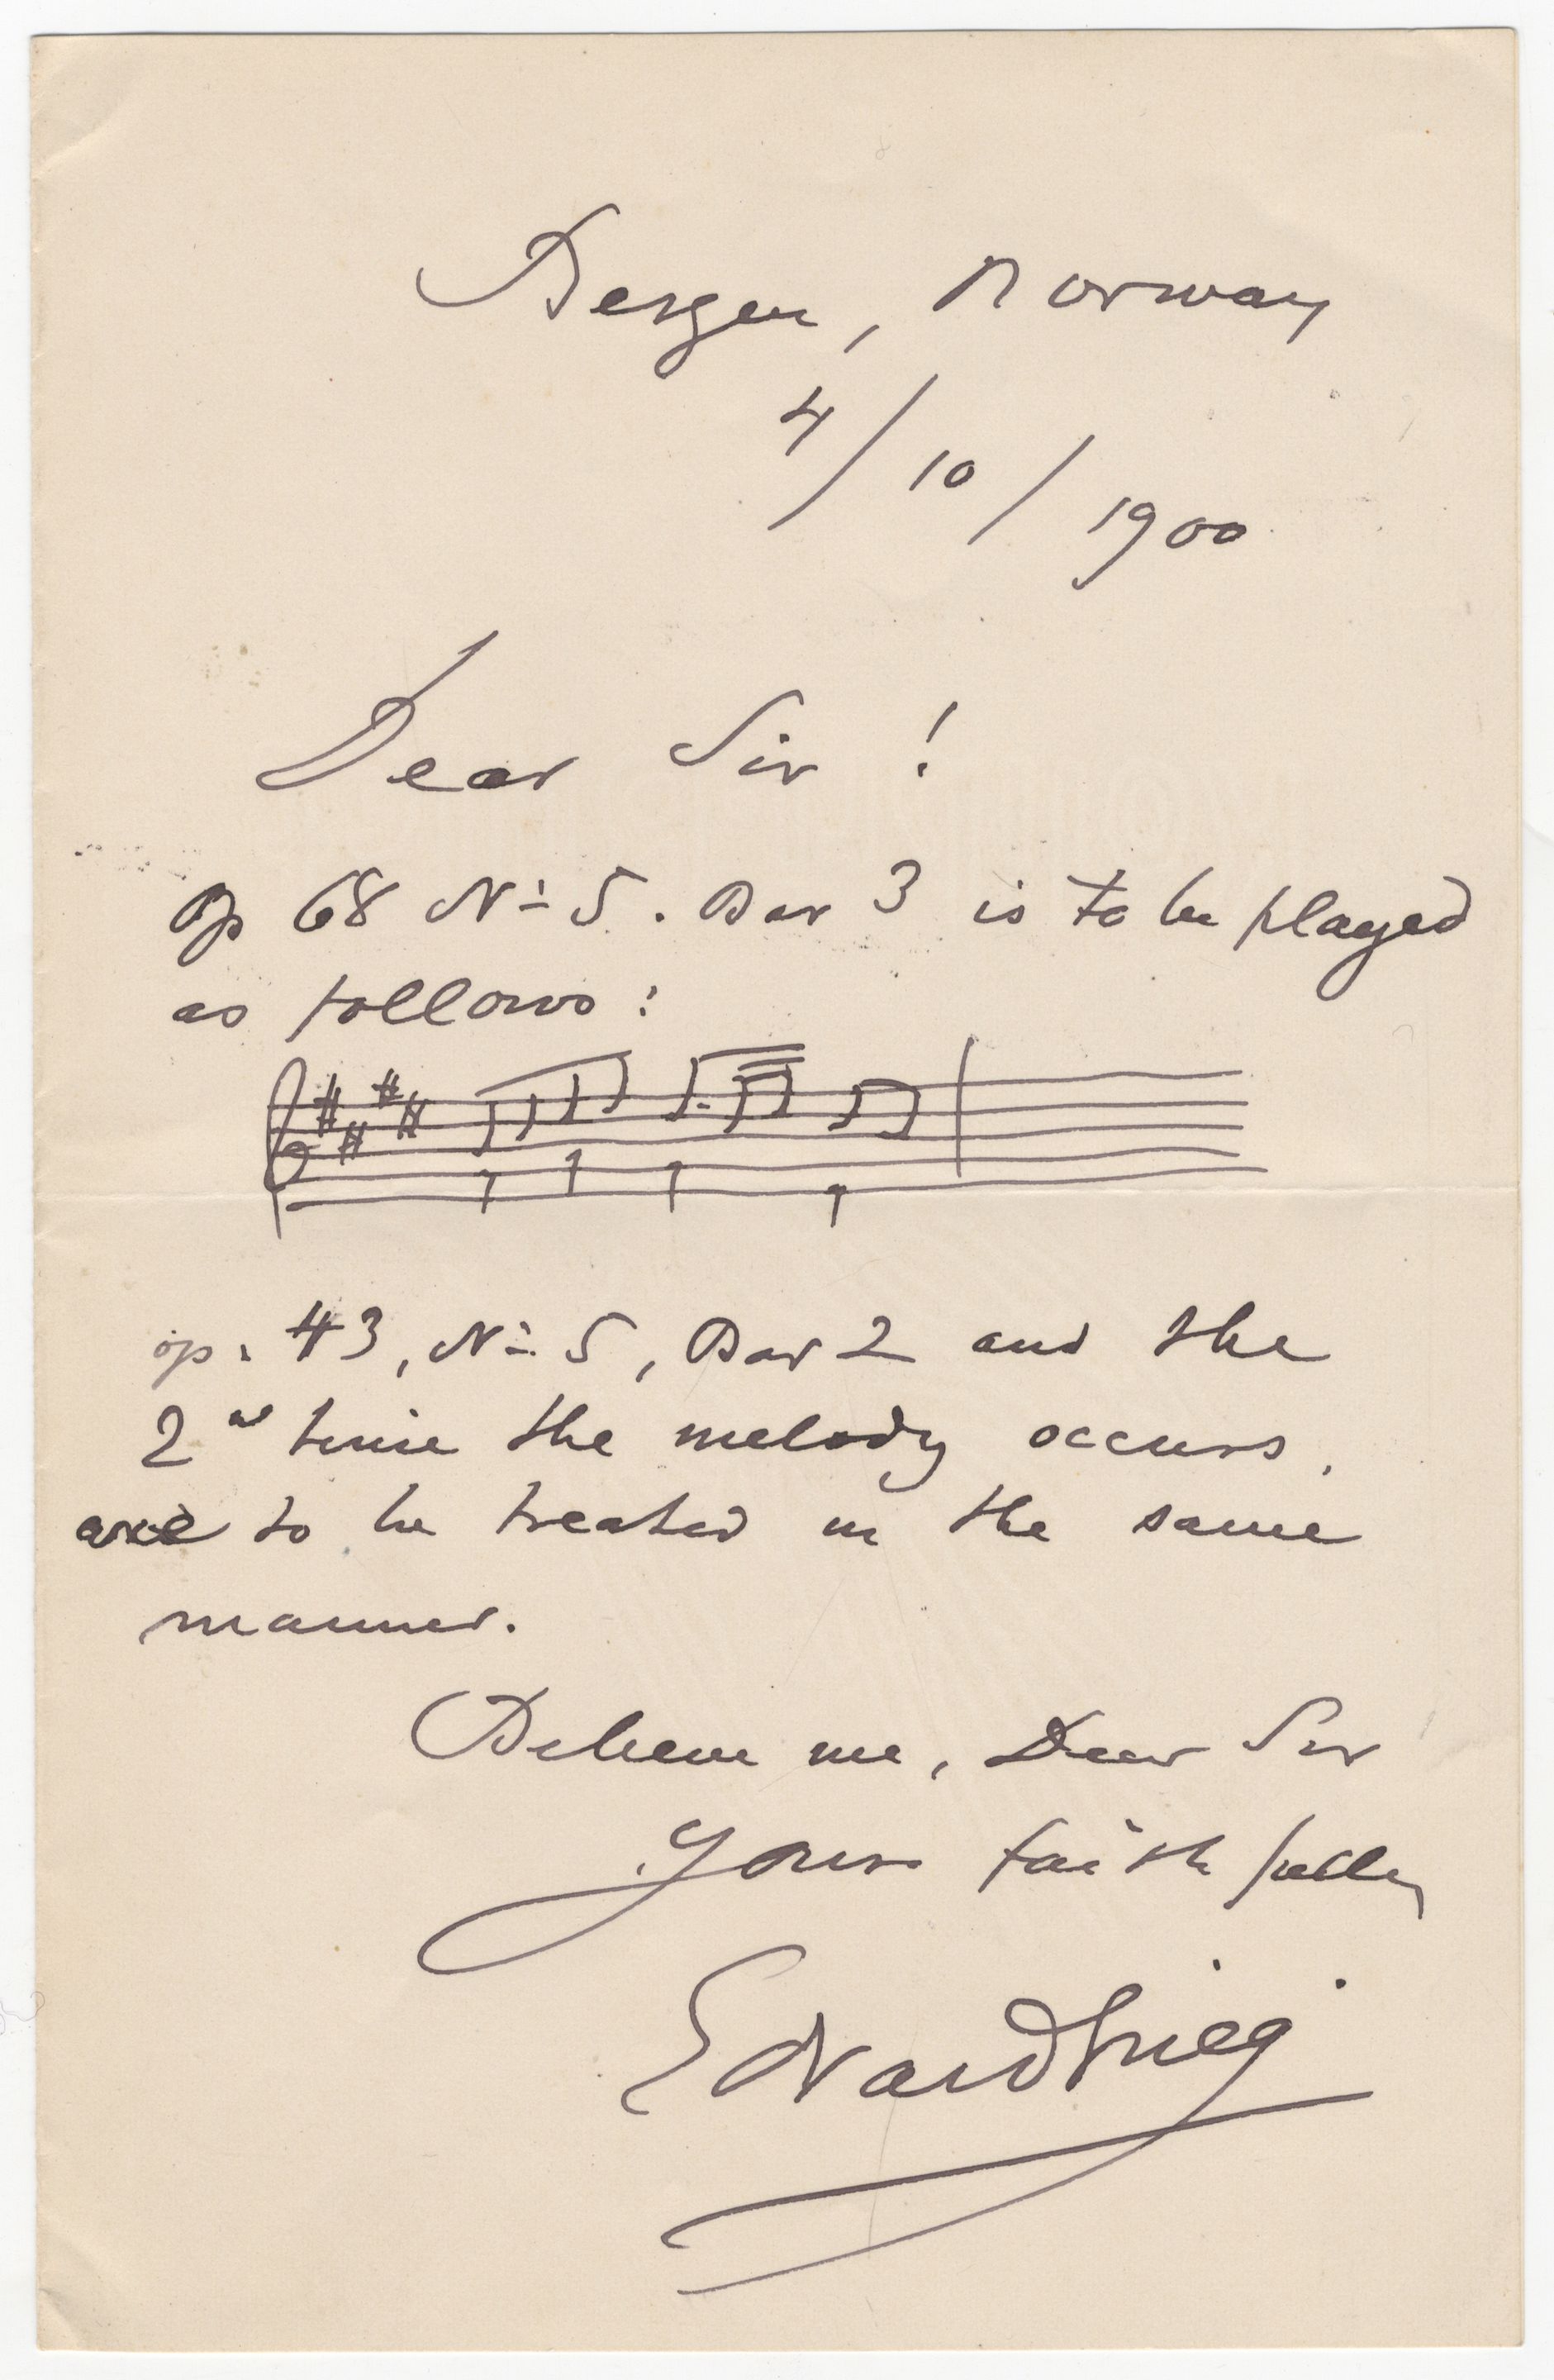 Bergen, Norway
4/10/1900
Dear Sir!
Op 68 No 5. Bar 3 is to be played
as follows:
op. 43, No 5, Bar 2 and the
2nd time the melody occurs,
are to be treated in the same
manner.
Believe me, Dear Sir
Yours faithfully
Edvard Grieg